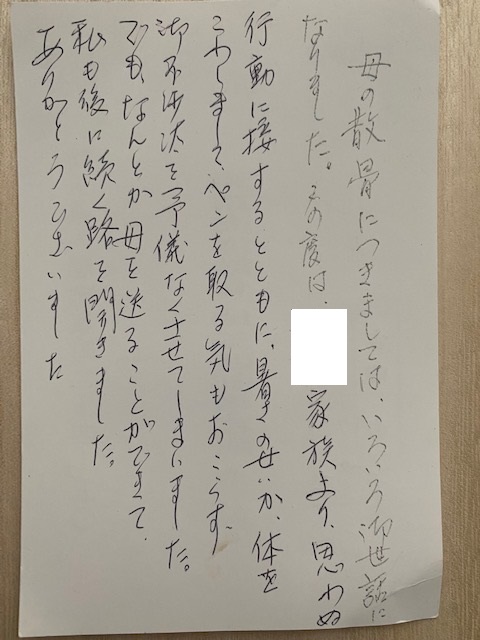 母の散骨につきましては、いろいろ御世話に
なりました。その度は、
家族より、思わぬ
行動に接するとともに、暑さのせいか、体を
こわしまして、ペンを取る気もおこらず、
御不沙汰を予儀なくさせてしまいました。
でも、なんとか母を送ることができて、
私も後に続く路を開きました。
ありがとうございました